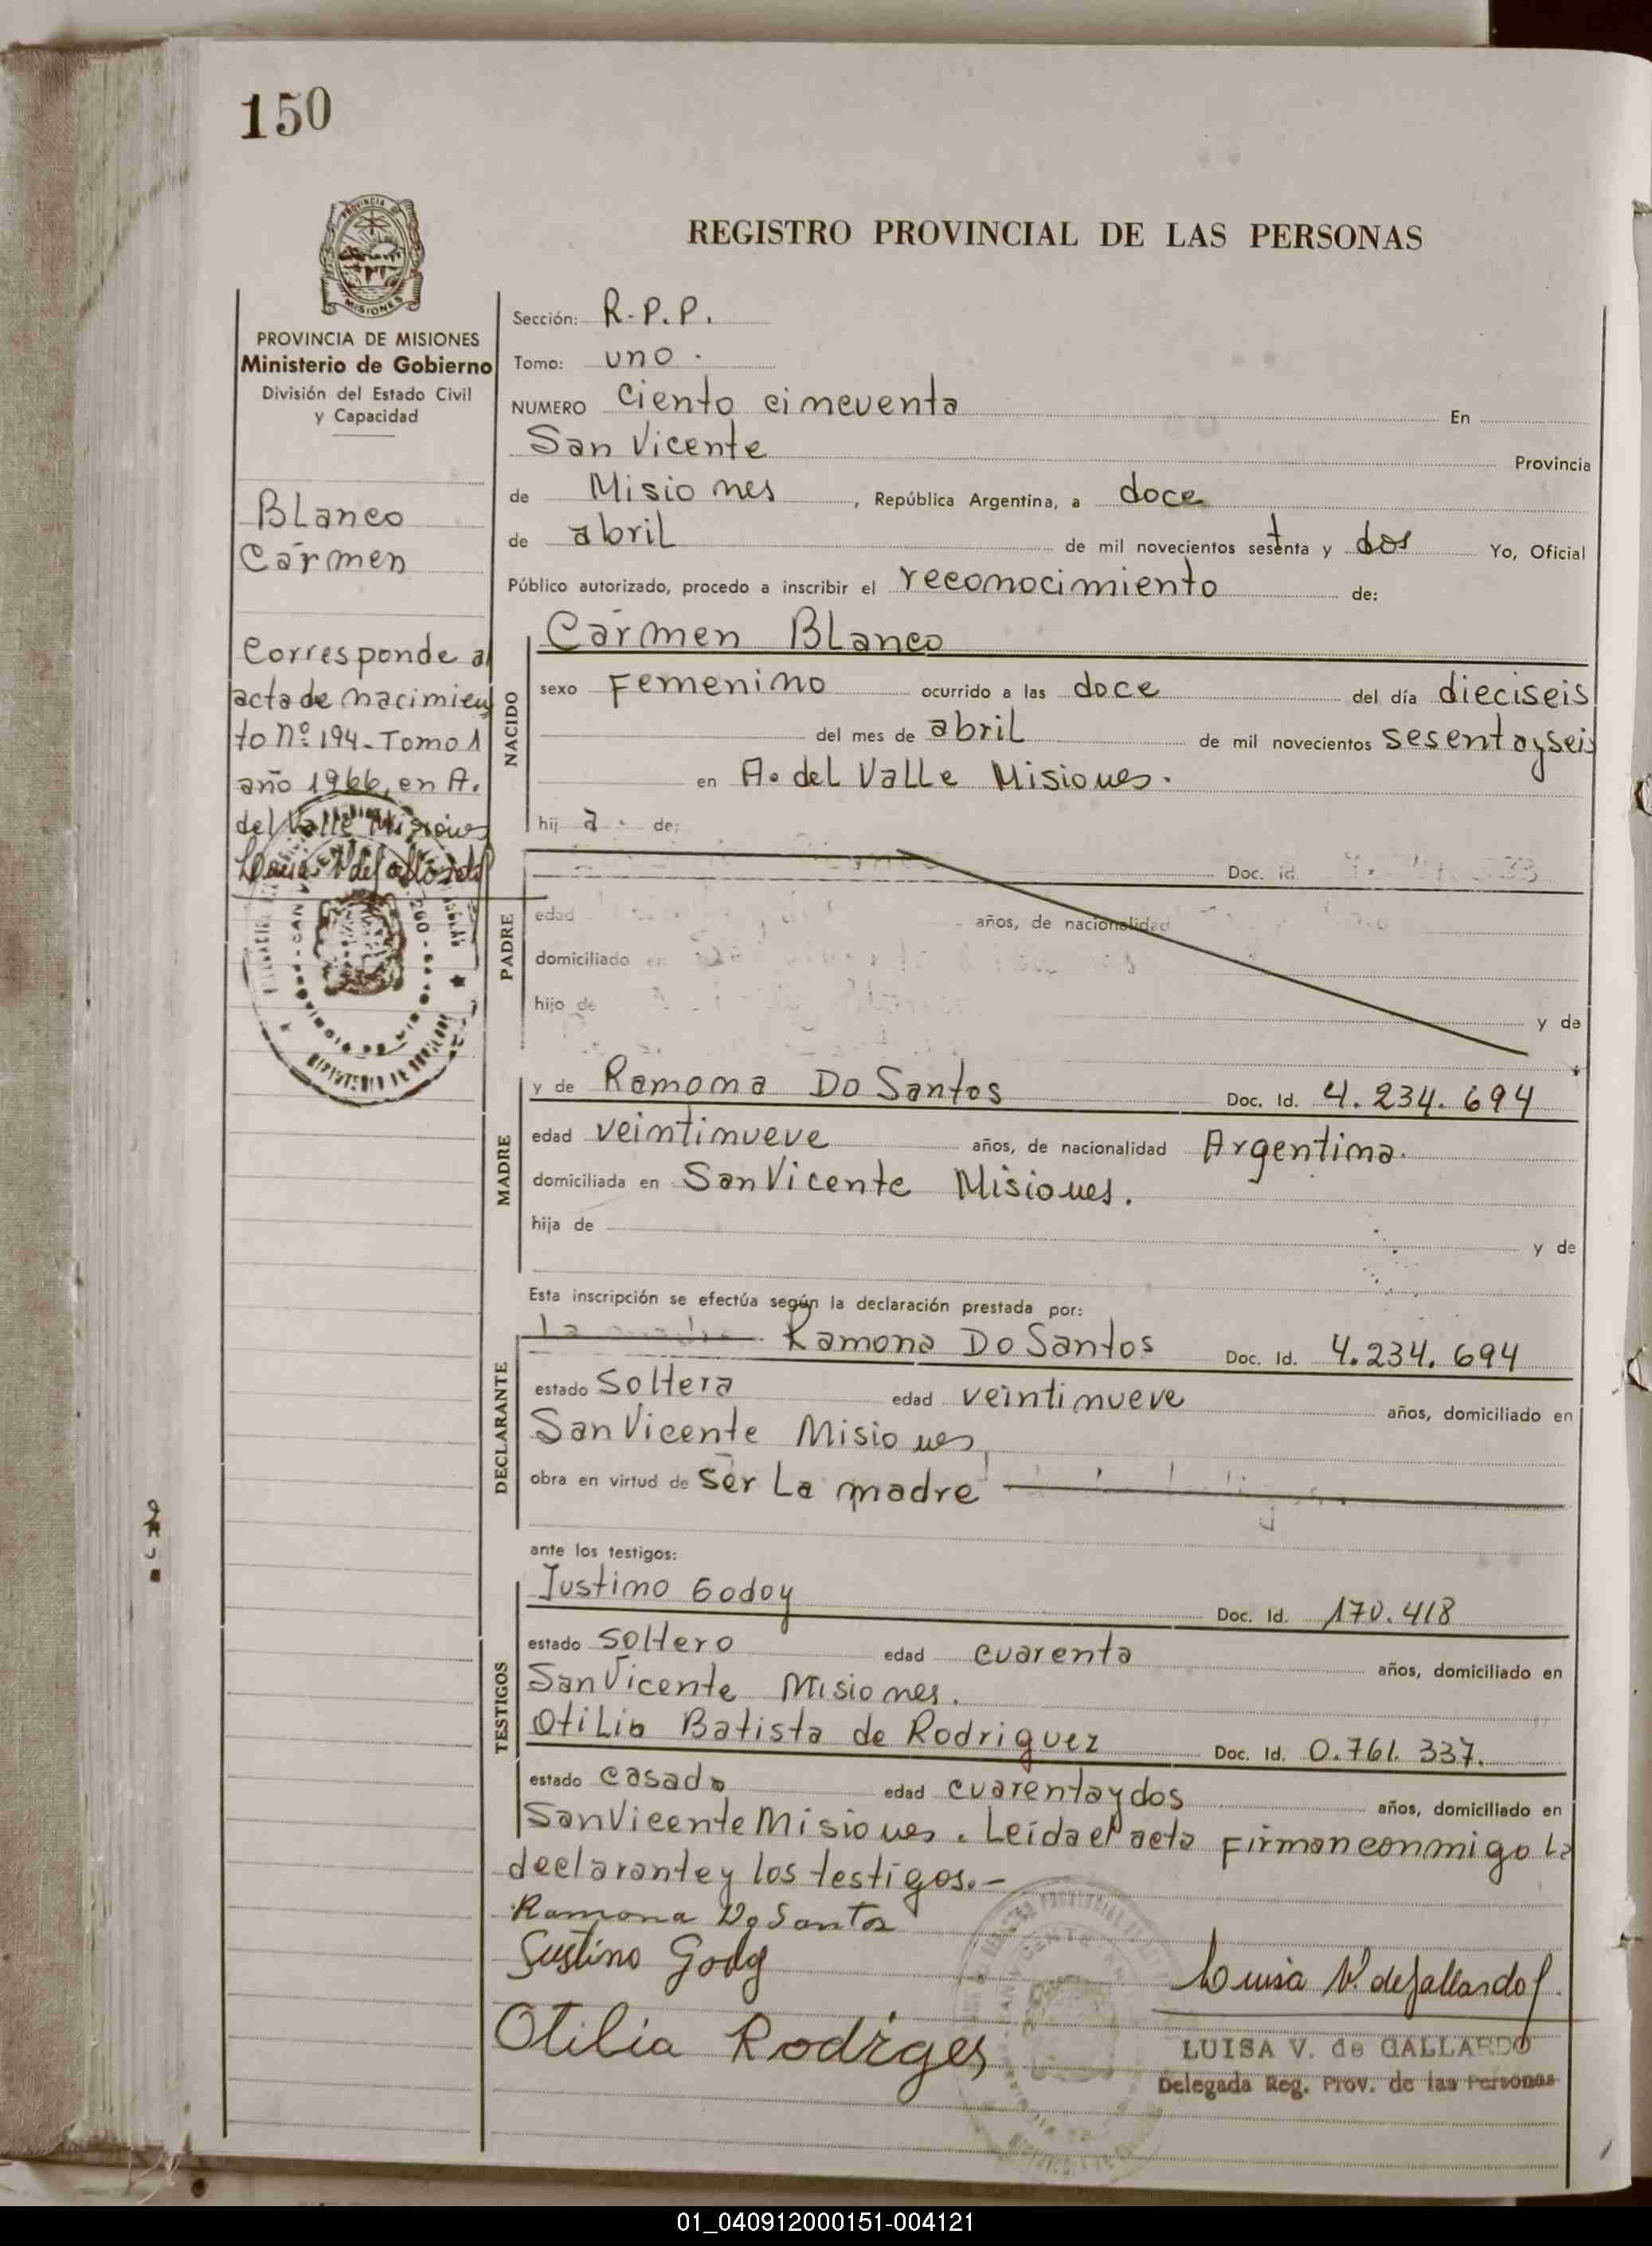 150
PROVINCIA DE
MISIONES
REGISTRO PROVINCIAL DE LAS PERSONAS
PROVINCIA DE MISIONES
Ministerio de Gobierno
División del Estado Civil
y Capacidad
Blanco
Cármen
Corresponde al
acta de nacimien
to Nº 194 - Tomo 1
año 1966, en A.
del Valle Misiones
Sección: R.P.P.
Tomo: uno.
NUMERO Ciento cincuenta En
San Vicente Provincia
de Misiones, República Argentina, a doce
de abril de mil novecientos setenta y dos Yo, Oficial
Público autorizado, procedo a inscribir el reconocimiento de:
NACIDO
Cármen Blanco
sexo Femenino ocurrido a las doce del día dieciseis
del mes de abril de mil novecientos sesenta y seis
en A. del Valle Misiones.
hij a. de:
PADRE
Doc. id.
edad años, de nacionalidad
domiciliado en
hijo de
y de
MADRE
y de Ramona Do Santos Doc. Id. 4.234.694
edad veintinueve años, de nacionalidad Argentina.
domiciliada en San Vicente Misiones.
hija de
y de
Esta inscripción se efectúa según la declaración prestada por:
DECLARANTE
La madre Ramona Do Santos Doc. Id. 4.234.694
estado Soltera edad veintinueve años, domiciliado en
San Vicente Misiones
obra en virtud de Ser La madre
ante los testigos:
TESTIGOS
Justino Godoy Doc. Id. 170.418
estado Soltero edad cuarenta años, domiciliado en
San Vicente Misiones.
Otilia Batista de Rodriguez Doc. Id. 0.761.337.
estado casada edad cuarenta y dos años, domiciliado en
San Vicente Misiones. Leída el acta Firman conmigo La
declarante y los testigos.-
Ramona Do Santos
Justino Godoy
Luisa V. de Gallardo
Otilia Rodriges
LUISA V. de GALLARDO
Delegada Reg. Prov. de las Personas
01_040912000151-004121